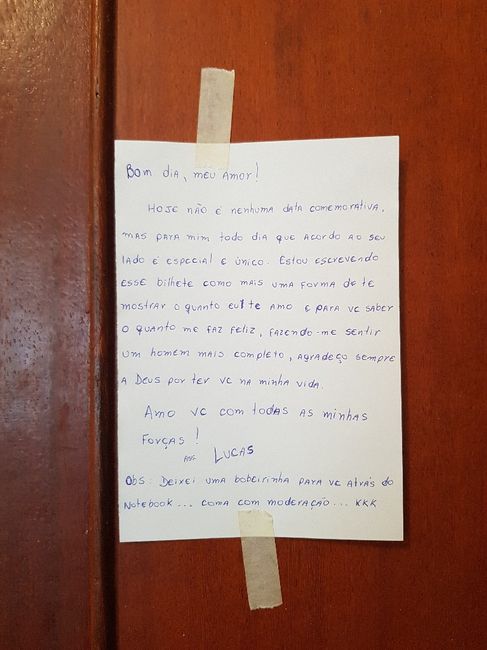 Bom dia, meu amor!
Hoje não é nenhuma data comemorativa,
mas para mim todo dia que acordo ao seu
lado é especial e único. Estou escrevendo
esse bilhete como mais uma forma de te
mostrar o quanto eu te amo e para vc saber
o quanto me faz feliz, fazendo-me sentir
um homem mais completo, agradeço sempre
a Deus por ter vc na minha vida.
Amo vc com todas as minhas
forças!
Ass Lucas
Obs: Deixei uma bobeirinha para vc atrás do
notebook... coma com moderação... kkk